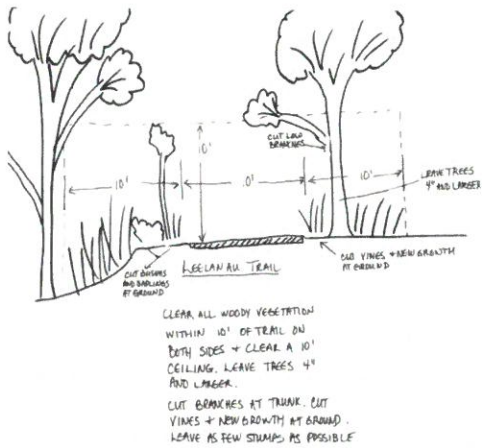 CUT LOW
BRANCHES
10'
10'
.0'
10'
LEAVE TREES
4" AND LARGER
CUT BUSHES
AND SAPLINGS
AT GROUND
LEELANAU TRAIL
CUT VINES + NEW GROWTH
AT GROUND
CLEAR ALL WOODY VEGETATION
WITHIN 10' OF TRAIL ON
BOTH SIDES + CLEAR A 10'
CEILING. LEAVE TREES 4"
AND LARGER.
CUT BRANCHES AT TRUNK. CUT
VINES + NEW GROWTH AT GROUND.
LEAVE AS FEW STUMPS AS POSSIBLE